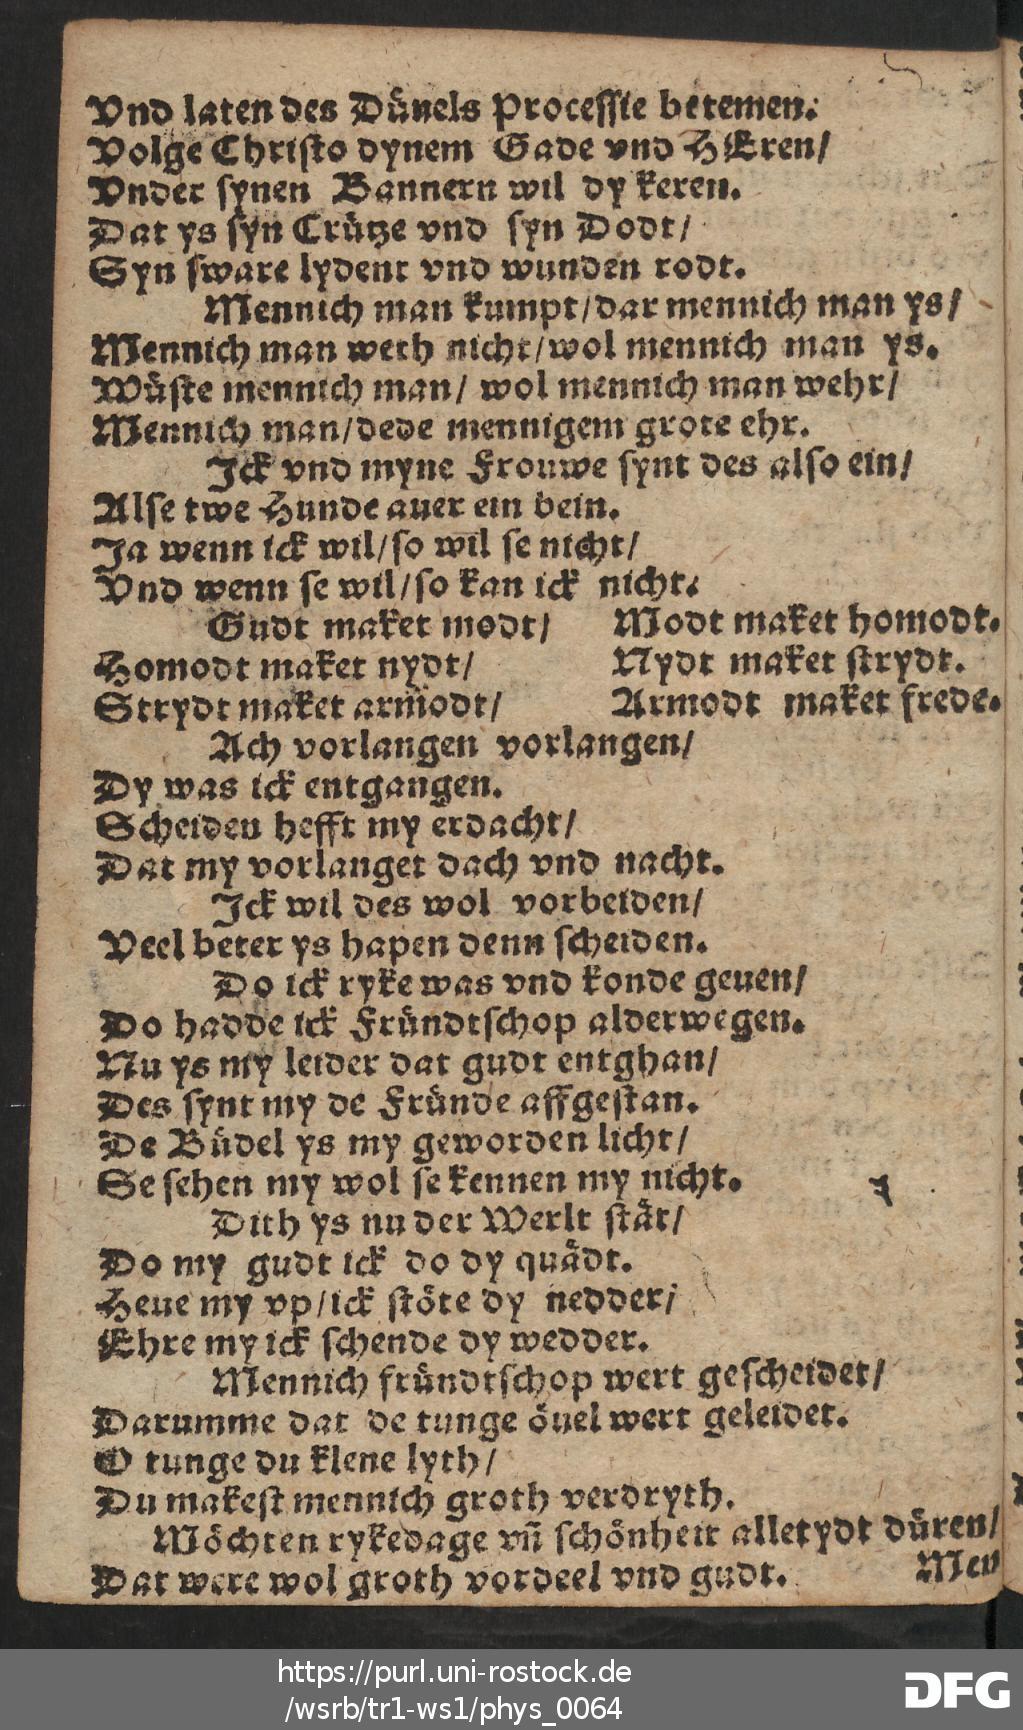 Vnd laten des Düuels Processie betemen.
Volge Christo dynem Gade vnd HEren/
Vnder synen Bannern wil dy keren.
Dat ys syn Crütze vnd syn Dodt/
Syn sware lydent vnd wunden rodt.
Mennich man kumpt/dar mennich man ys/
Mennich man weth nicht/wol mennich man ys.
Wüste mennich man/ wol mennich man wehr/
Mennich man/dede mennigem grote ehr.
Ick vnd myne Frouwe synt des also ein/
Alse twe Hunde auer ein bein.
Ja wenn ick wil/so wil se nicht/
Vnd wenn se wil/so kan ick nicht.
Gudt maket modt/ Modt maket homodt.
Homodt maket nydt/ Nydt maket strydt.
Strydt maket armodt/ Armodt maket frede.
Ach vorlangen vorlangen/
Dy was ick entgangen.
Scheiden hefft my erdacht/
Dat my vorlanget dach vnd nacht.
Ick wil des wol vorbeiden/
Veel beter ys hapen denn scheiden.
Do ick ryke was vnd konde geuen/
Do hadde ick Fründtschop alderwegen.
Nu ys my leider dat gudt entghan/
Des synt my de Fründe affgestan.
De Büdel ys my geworden licht/
Se sehen my wol se kennen my nicht.
Dith ys nu der Werlt stät/
Do my gudt ick do dy quädt.
Heue my vp/ick stöte dy nedder/
Ehre my ick schende dy wedder.
Mennich fründtschop wert gescheidet/
Darumme dat de tunge öuel wert geleidet.
O tunge du klene lyth/
Du makest mennich groth verdryth.
Möchten rykedage vñ schönheit alletydt düren/
Dat were wol groth vordeel vnd gudt.
Men
https://purl.uni-rostock.de
/wsrb/tr1-ws1/phys_0064
DFG